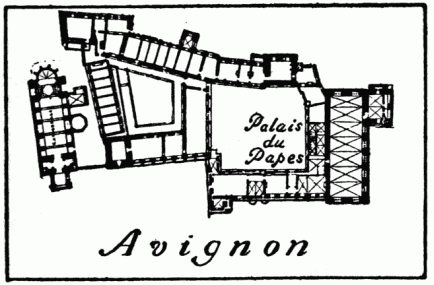 Palais
du
Papes
Avignon